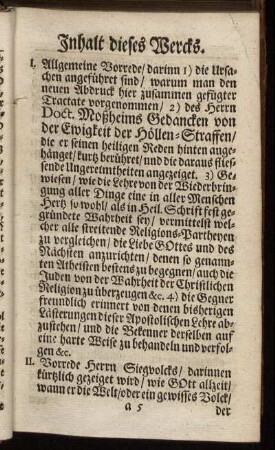 Inhalt dieses Wercks.
I. Allgemeine Vorrede/ darinn 1) die Ursa-
chen angeführet sind/ warum man den
neuen Abdruck hier zusammen gefügter
Tractate vorgenommen/ 2) des Herrn
Doct. Moßheims Gedancken von
der Ewigkeit der Höllen-Straffen/
die er seinen heiligen Reden hinten ange-
hänget/ kurtz berühret/ und die daraus flies-
sende Ungereimtheiten angezeiget. 3) Ge-
wiesen/ wie die Lehre von der Wiederbrin-
gung aller Dinge eine in aller Menschen
Hertz so wohl/ als in Heil. Schrifft fest ge-
gründete Wahrheit sey/ vermittelst wel-
cher alle streitende Religions-Partheyen
zu vergleichen/ die Liebe GOttes und des
Nächsten anzurichten/ denen so genann-
ten Atheisten bestens zu begegnen/ auch die
Juden von der Wahrheit der Christlichen
Religion zu überzeugen &c. 4) die Gegner
freundlich erinnert von denen bisherigen
Lästerungen dieser Apostolischen Lehre ab-
zustehen/ und die Bekenner derselben auf
eine harte Weise zu behandeln und verfol-
gen &c.
II. Vorrede Herrn Siegvolcks/ darinnen
kürtzlich gezeiget wird/ wie GOtt allzeit/
wann er die Welt/ oder ein gewisses Volck/
a 5
der